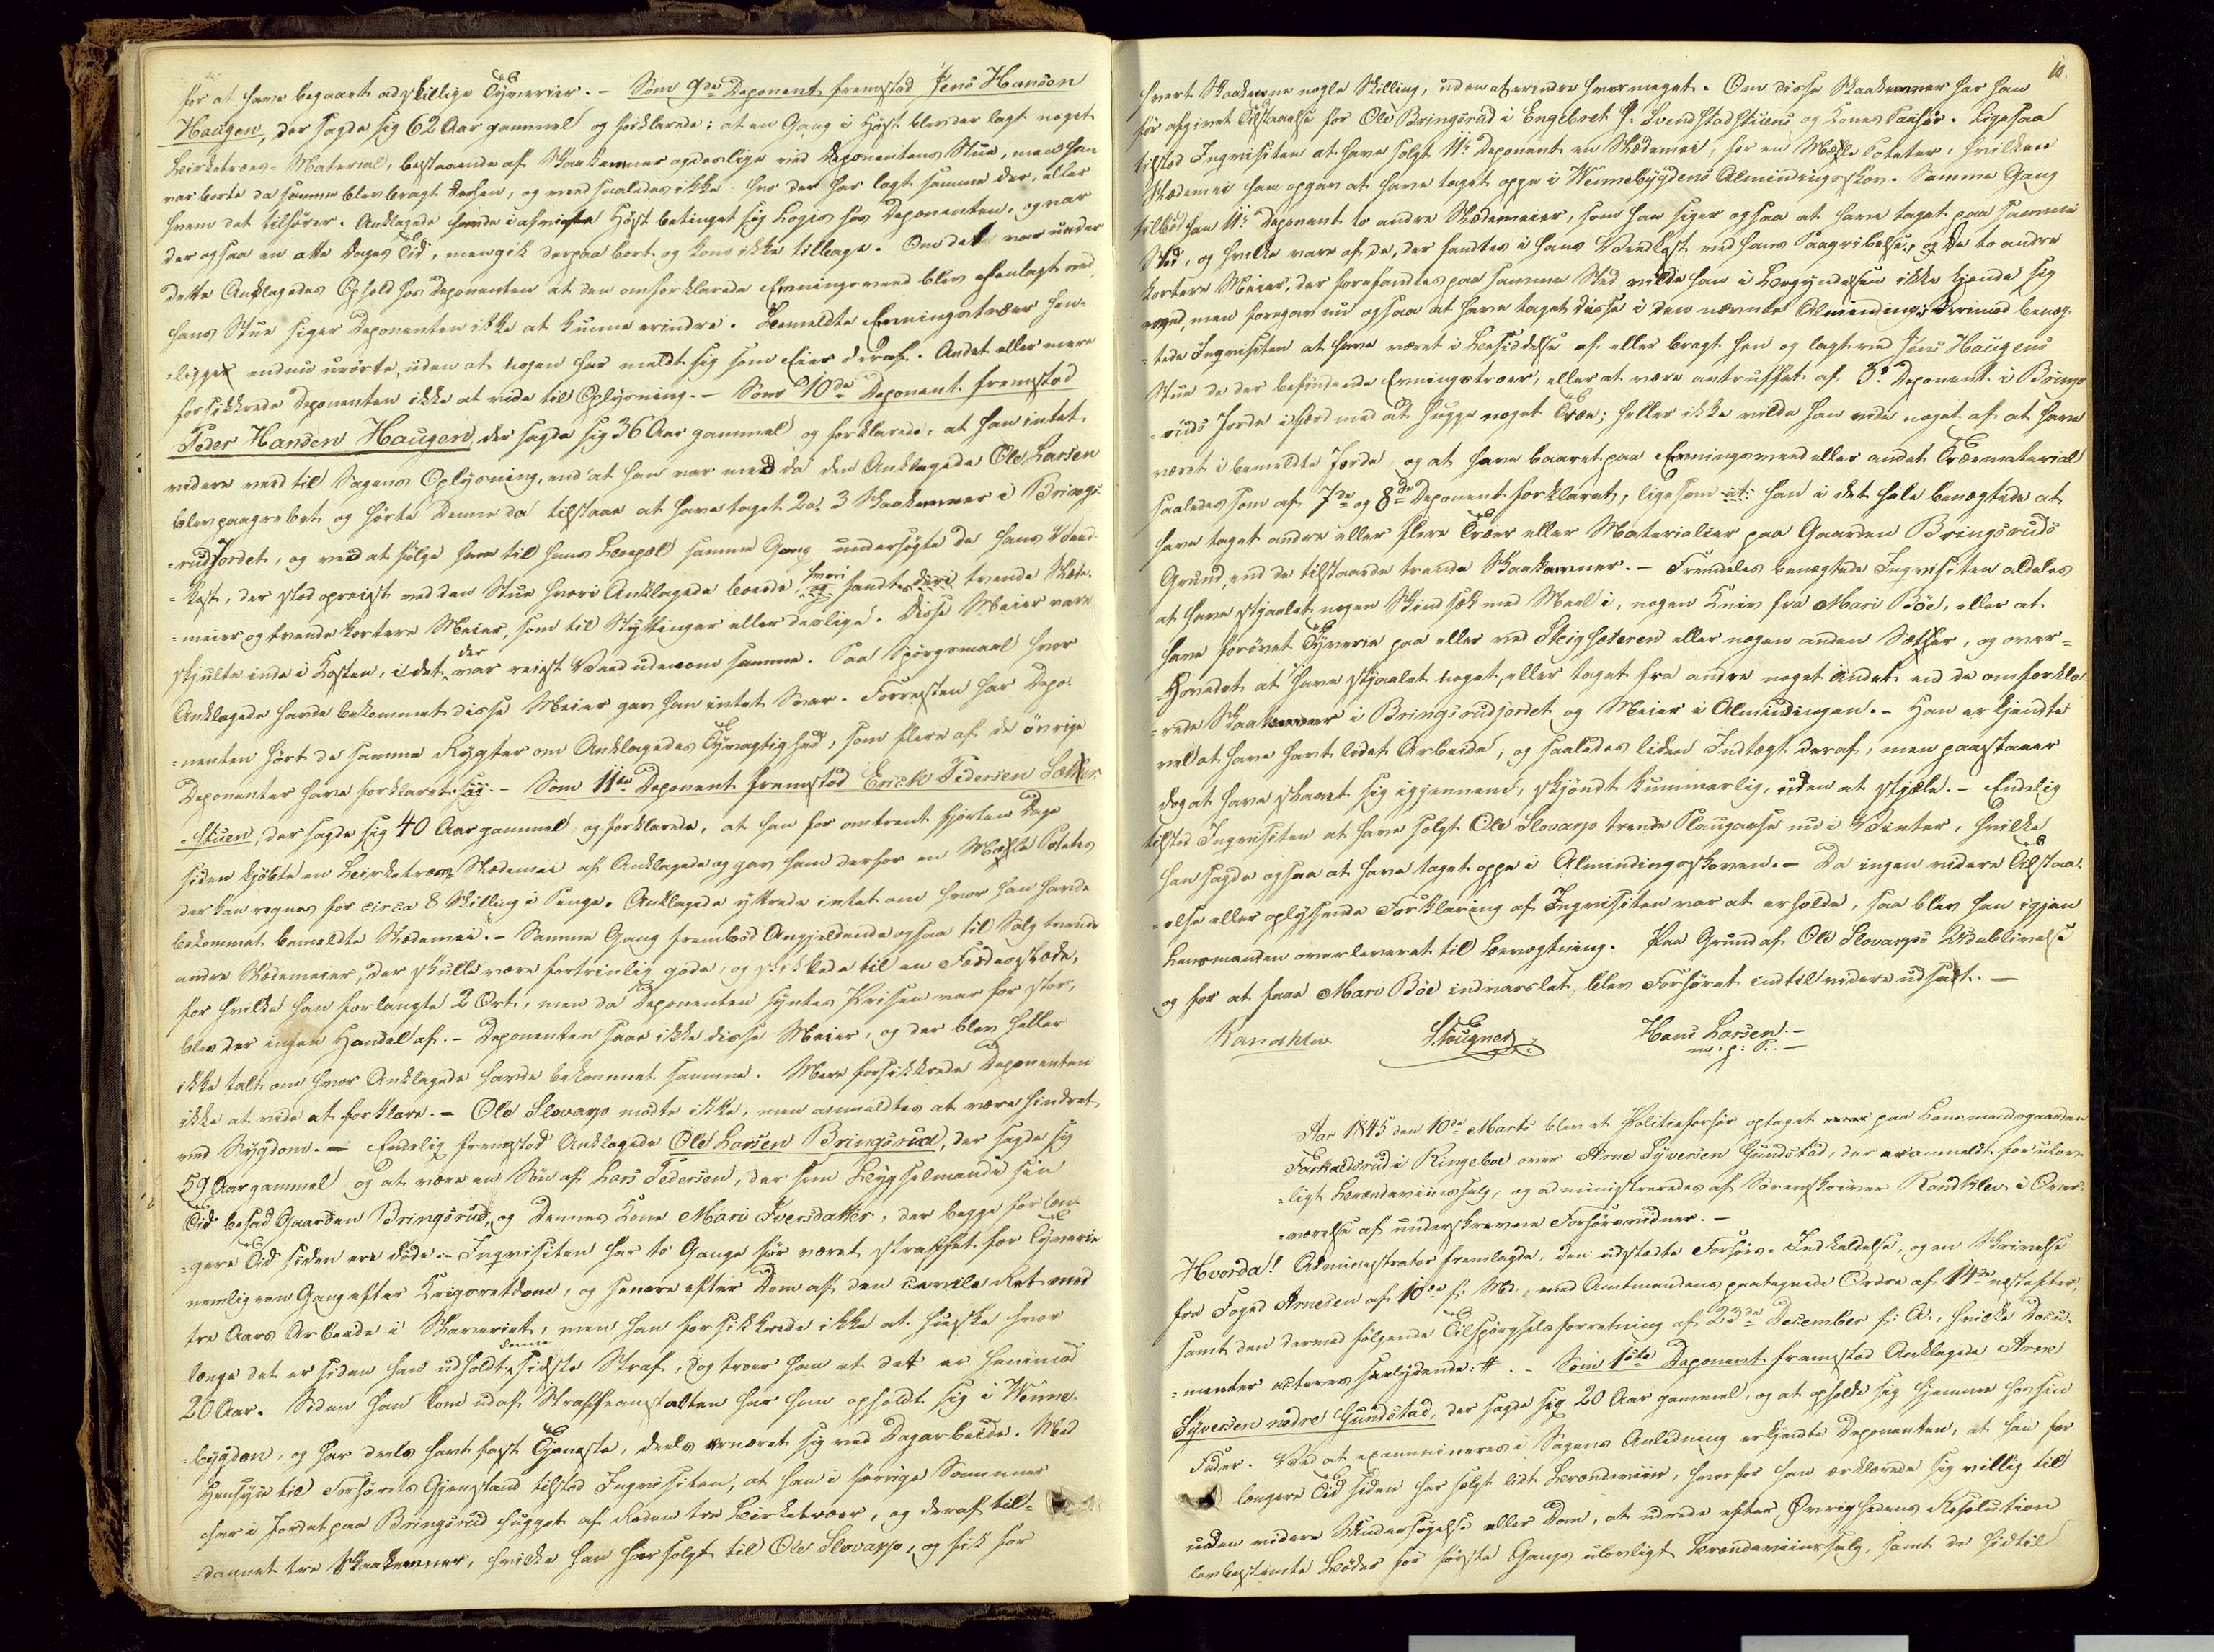 for at have begaaet adskillige Tyverier. - Som 9de Deponent fremstod Jens Hansen
Haugen, der sagde sig 62 Aar gammel og forklarede: at en Gang i Høst blev der lagt noget
Birketræes-Material, bestaaende af Skaakemner og deslige ved Deponentens Stue, men han
var borte da samme blev bragt derhen, og veed saaledes ikke hvo der har lagt samme der, eller
hvem det tilhører. Anklagede havde i afvigte Høst betinget sig Logis hos Deponenten, og var
der ogsaa en otte Dages Tid, men gik derpaa bort og kom ikke tilbage. Om det var under
dette Anklagedes Ophold hos Deponenten at den omforklarede Emningsveed blev henlagt ved
hans Stue siger Deponenten ikke at kunne erindre. Bemeldte Emningstræer hen-
-ligger endnu urørte, uden at nogen har meldt sig som Eier deraf. Andet eller mere
forsikkrede Deponenten ikke at vide til Oplysning. - Som 10de Deponent fremstod
Peder Hansen Haugen, der sagde sig 36 Aar gammel og forklarede, at han intet
videre veed til Sagens Oplysning, end at han var med da den Anklagede Ole Larsen
blev paagrebet og hørte denne da tilstaae at have taget 2 a 3 Skaakemner i Brings-
-rudjordet, og ved at følge ham til hans Bopæl samme Gang undersøgte de hans Veed-
-kast, der stod opreist ved den Stue hvori Anklagede boede, hvori fandtes tvende Slæde-
-meier og tvende kortere Meier, som til Styttinger eller deslige. Disse Meier vare
skjulte inde i Kasten, idet der var reist Veed udenom samme. Paa Spørgsmaal hvor
Anklagede havde bekommet disse Meier gav han intet Svar. Forresten har Depo-
-nenten hørt de samme Rygter om Anklagedes Tyvagtighed, som flere af de øvrige
Deponenter have forklaret sig. - Som 11te Deponent fremstod Erick Pedersen Sætter-
-stuen, der sagde sig 40 Aar gammel og forklarede, at han for omtrent fjorten Dage
siden kjøbte en Birketræes Slædemei af Anklagede og gav ham derfor en Mæhle Poteter
der kan regnes for circa 8 Skilling i Penge. Anklagede yttrede intet om hvor han havde
bekommet bemeldte Slædemei. - Samme Gang frembød Angjeldende ogsaa til Salg tvende
andre Slædemeier, der skulle være fortrinlig gode, og skikkede til en Færdesslæde,
for hvilke han forlangte 2 Ort, men da Deponenten syntes Prisen var for stor,
blev der ingen Handel af. - Deponenten saae ikke disse Meier, og der blev heller
ikke talt om hvor Anklagede havde bekommet samme. Mere forsikkrede Deponenten
ikke at vide at forklare. - Ole Slovarp mødte ikke, men anmeldtes at være hindret
ved Sygdom. - Endelig fremstod Anklagede Ole Larsen Bringsrud, der sagde sig
59 Aar gammel og at være en Søn af Lars Pedersen, der som Bygselmand i sin
Tid besad Gaarden Bringsrud, og dennes Kone Mari Iversdatter, der begge for læn-
-gere Tid siden ere døde. - Inqvisiten har to Gange før været straffet for Tyverie
nemlig een Gang efter Krigsretsdom, og senere efter Dom af den civile Ret med
tre Aars Arbeide i Slaveriet, men han forsikkrede ikke at huske hvor
længe det er siden han udholdt denne sidste Straf, dog troer han at det er henimod
20 Aar. Siden han kom ud af Straffeanstalten har han opholdt sig i Venne-
-bygden, og har deels havt fast Tjeneste, deels ernæret sig ved Dagarbeide. Med
Hensyn til Forhørets Gjenstand tilstod Inqvisiten, at han i forrige Sommer
har i Jordet paa Bringsrud hugget af Roden tre Birketræer, og deraf til-
-dannet tre Skaakemner, hvilke han har solgt til Ole Slovarp, og fik for
10.
hvert Skaakemne nogle Skilling, uden at erindre hvormeget. Om disse Skaakemner har han
før afgivet Tilstaaelse for Ole Bringsrud i Engebret P. Svendstadstuens og Kones Paahør. Ligesaa
tilstod Inqvisiten at have solgt 11te Deponent en Slædemei, for en Mæhle Poteter, hvilken
Slædemei han opgav at have taget oppe i Vennebygdens Almindingsskov. Samme Gang
tilbød han 11te Deponent to andre Slædemeier, som han siger ogsaa at have taget paa samme
Sted, og hvilke vare af de, der fandtes i hans Veedkast ved hans Paagribelse, og de to andre
kortere Meier, der forefandtes paa samme Sted vilde han i Begyndelsen ikke kjende sig
ved, men foregav nu ogsaa at have taget disse i den nævnte Alminding; derimod benæg-
-tede Inqvisiten at have været i Besiddelse af eller bragt hen og lagt ved Jens Haugens
Stue de der befindende Emningstræer, eller at være antruffet af 8de Deponent i Brings-
-ruds Jorde ifærd med at hugge noget Træe; heller ikke vilde han vide noget af at have
været i bemeldte Jorde og at have baaret paa Emningsveed eller andet Træmaterial
saaledes som af 7de og 8de Deponent forklaret, ligesom at: han i det hele benægtede at
have taget andre eller flere Træer eller Materialier paa Gaarden Bringsruds
Grund, end de tilstaaede trende Skaakemner. - Fremdeles benægtede Inqvisiten aldeles
at have stjaalet nogen Skindsæk med Meel i, nogen Kniv fra Mari Böe, eller at
have forøvet Tyverie paa eller ved Steigsæteren eller nogen anden Sæther, og over-
-hovedet at have stjaalet noget, eller taget fra andre noget andet end de omforkla-
-rede Skaakemner i Bringsrudjordet og Meier i Almindingen. - Han erkjendte
vel at have havt lidet Arbeide, og saaledes liden Indtægt deraf, men paastaaer
dog at have slaaet sig igjennem, skjøndt kummerlig, uden at stjæle. - Endelig
tilstod Inqvisiten at have solgt Ole Slovarp trende Plougaase nu i Vinter, hvilke
han sagde ogsaa at have taget oppe i Almindingsskoven. - Da ingen videre Tilstaa-
-else eller oplysende Forklaring af Inqvisiten var at erholde, saa blev han igjen
Lensmanden overleveret til Bevogtning. Paa Grund af Ole Slovarps Udeblivelse
og for at faae Mari Böe indvarslet, blev Forhøret indtil videre udsatt. -
Randklev S. Tougner Hans Larsen. -
m: p: P: -
Aar 1845 den 10de Marts blev et Politieforhør optaget paa Lensmandsgaarden
i Ringeboe over Arne Syversen Gundstad, der er anmeldt for ulov-
-ligt Brændeviinssalg, og administreredes af Sorenskriver Randklev i Over-
-værelse af underskrevne Forhørsvidner. -
Hvorda! Administrator fremlagde, den udstedte Forhørs-Indkaldelse, og en Skrivelse
fra Foged Arnesen af 10de f. Md., med Amtmandens paategnede Ordre af 14de næstefter,
samt den dermed følgende Tilspørgselsforretning af 23de December f: A:, hvilke Docu-
-menter acteres saalydende: #. - Som 1ste Deponent fremstod Anklagede Arne
Syversen nedre Gundstad, der sagde sig 20 Aar gammel, og at opholde sig hjemme hos sin
Fader. Ved at examineres i Sagens Anledning erkjendte Deponenten, at han for
længere Tid siden har solgt lidt Brændeviin, hvorfor han erklærede sig villig til
uden videre Undersøgelse eller Dom, at udrede efter Øvrighedens Resolution
lovbestemte Bøder for første Gangs ulovligt Brændeviinssalg, samt de hidtil